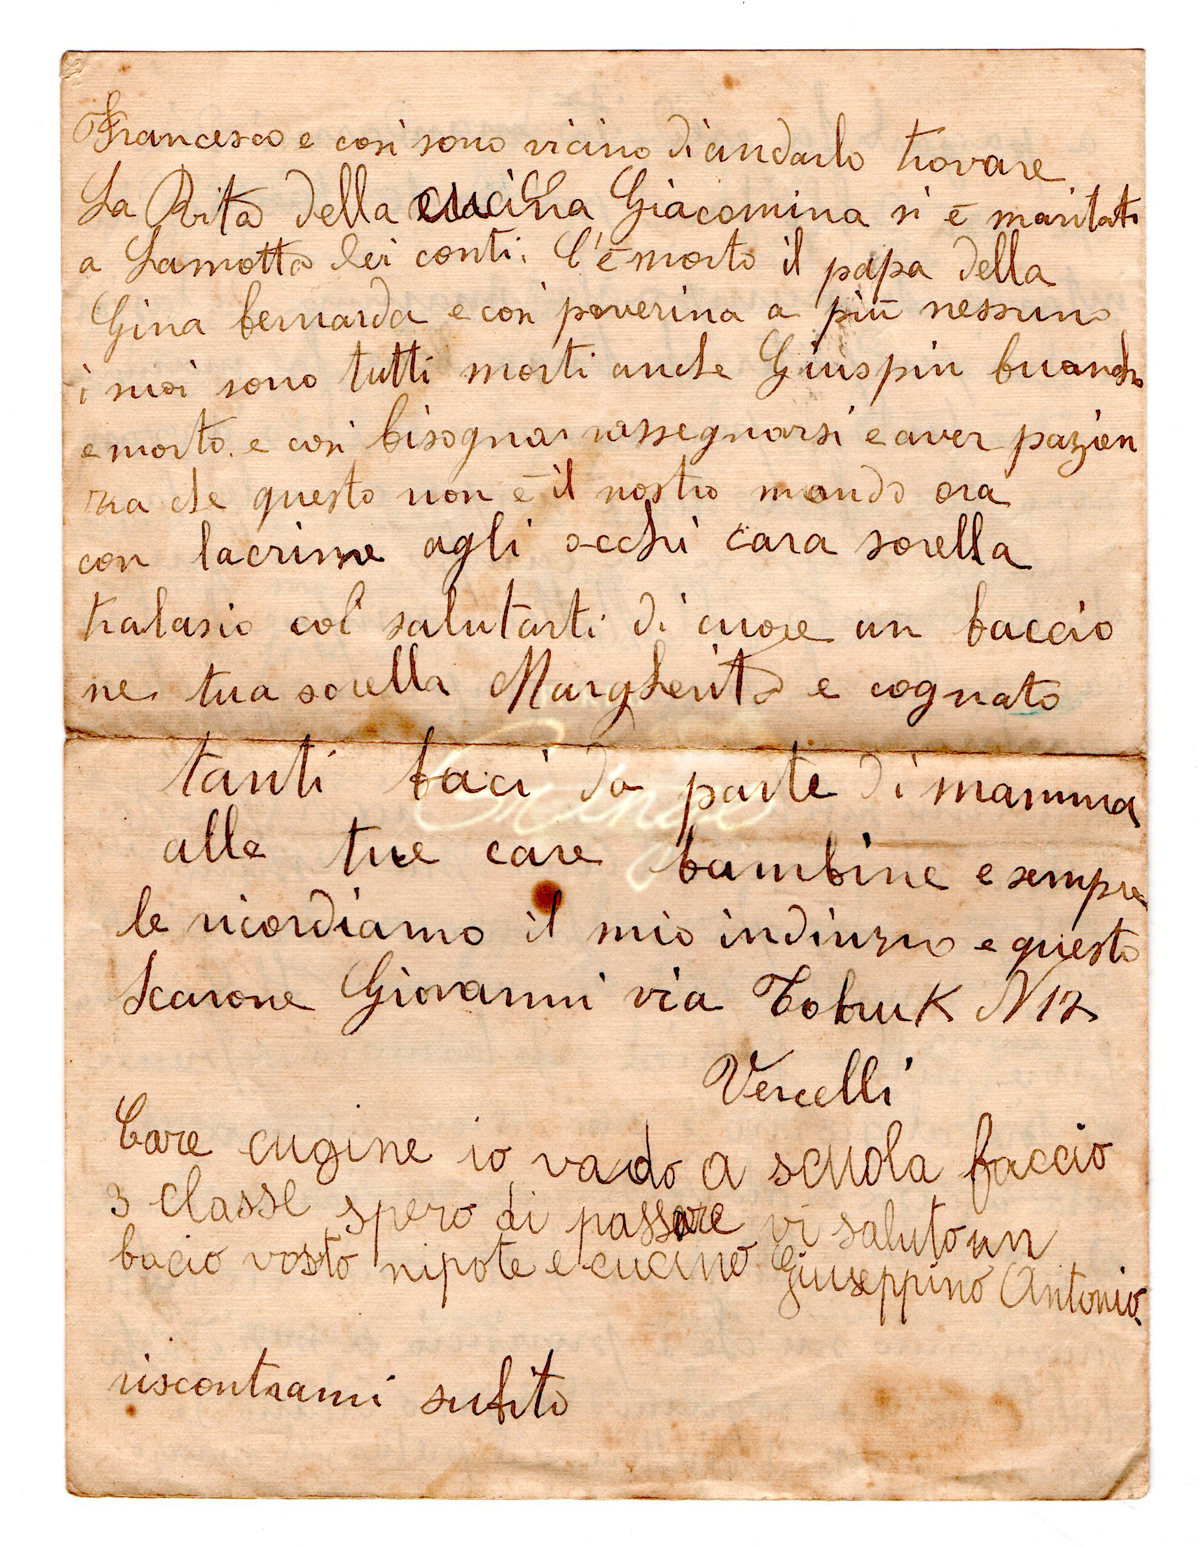 Francesco e così sono vicino di andarlo trovare
La Rita della cucina Giacomina si é maritata
a Lamotta dei conti. C'é morto il papa della
Gina bernarda e così poverina a più nessuno
i miei sono tutti morti anche Giuspin
e morto. e così bisogna rassegnarsi e aver pazien
za che questo non é il nostro mondo ora
con lacrime agli occhi cara sorella
tralasio col salutarti di cuore un baccio
ne tua sorella Margherita e cognato
tanti baci da parte di mamma
alle tue care bambine e sempre
le ricordiamo il mio indirizzo e questo
Scarone Giovanni via Tobruk N 12
Vercelli
Care cugine io vado a scuola faccio
3 classe spero di passare vi saluto un
bacio vosto nipote e cucino Giuseppino Antonio.
riscontrami subito